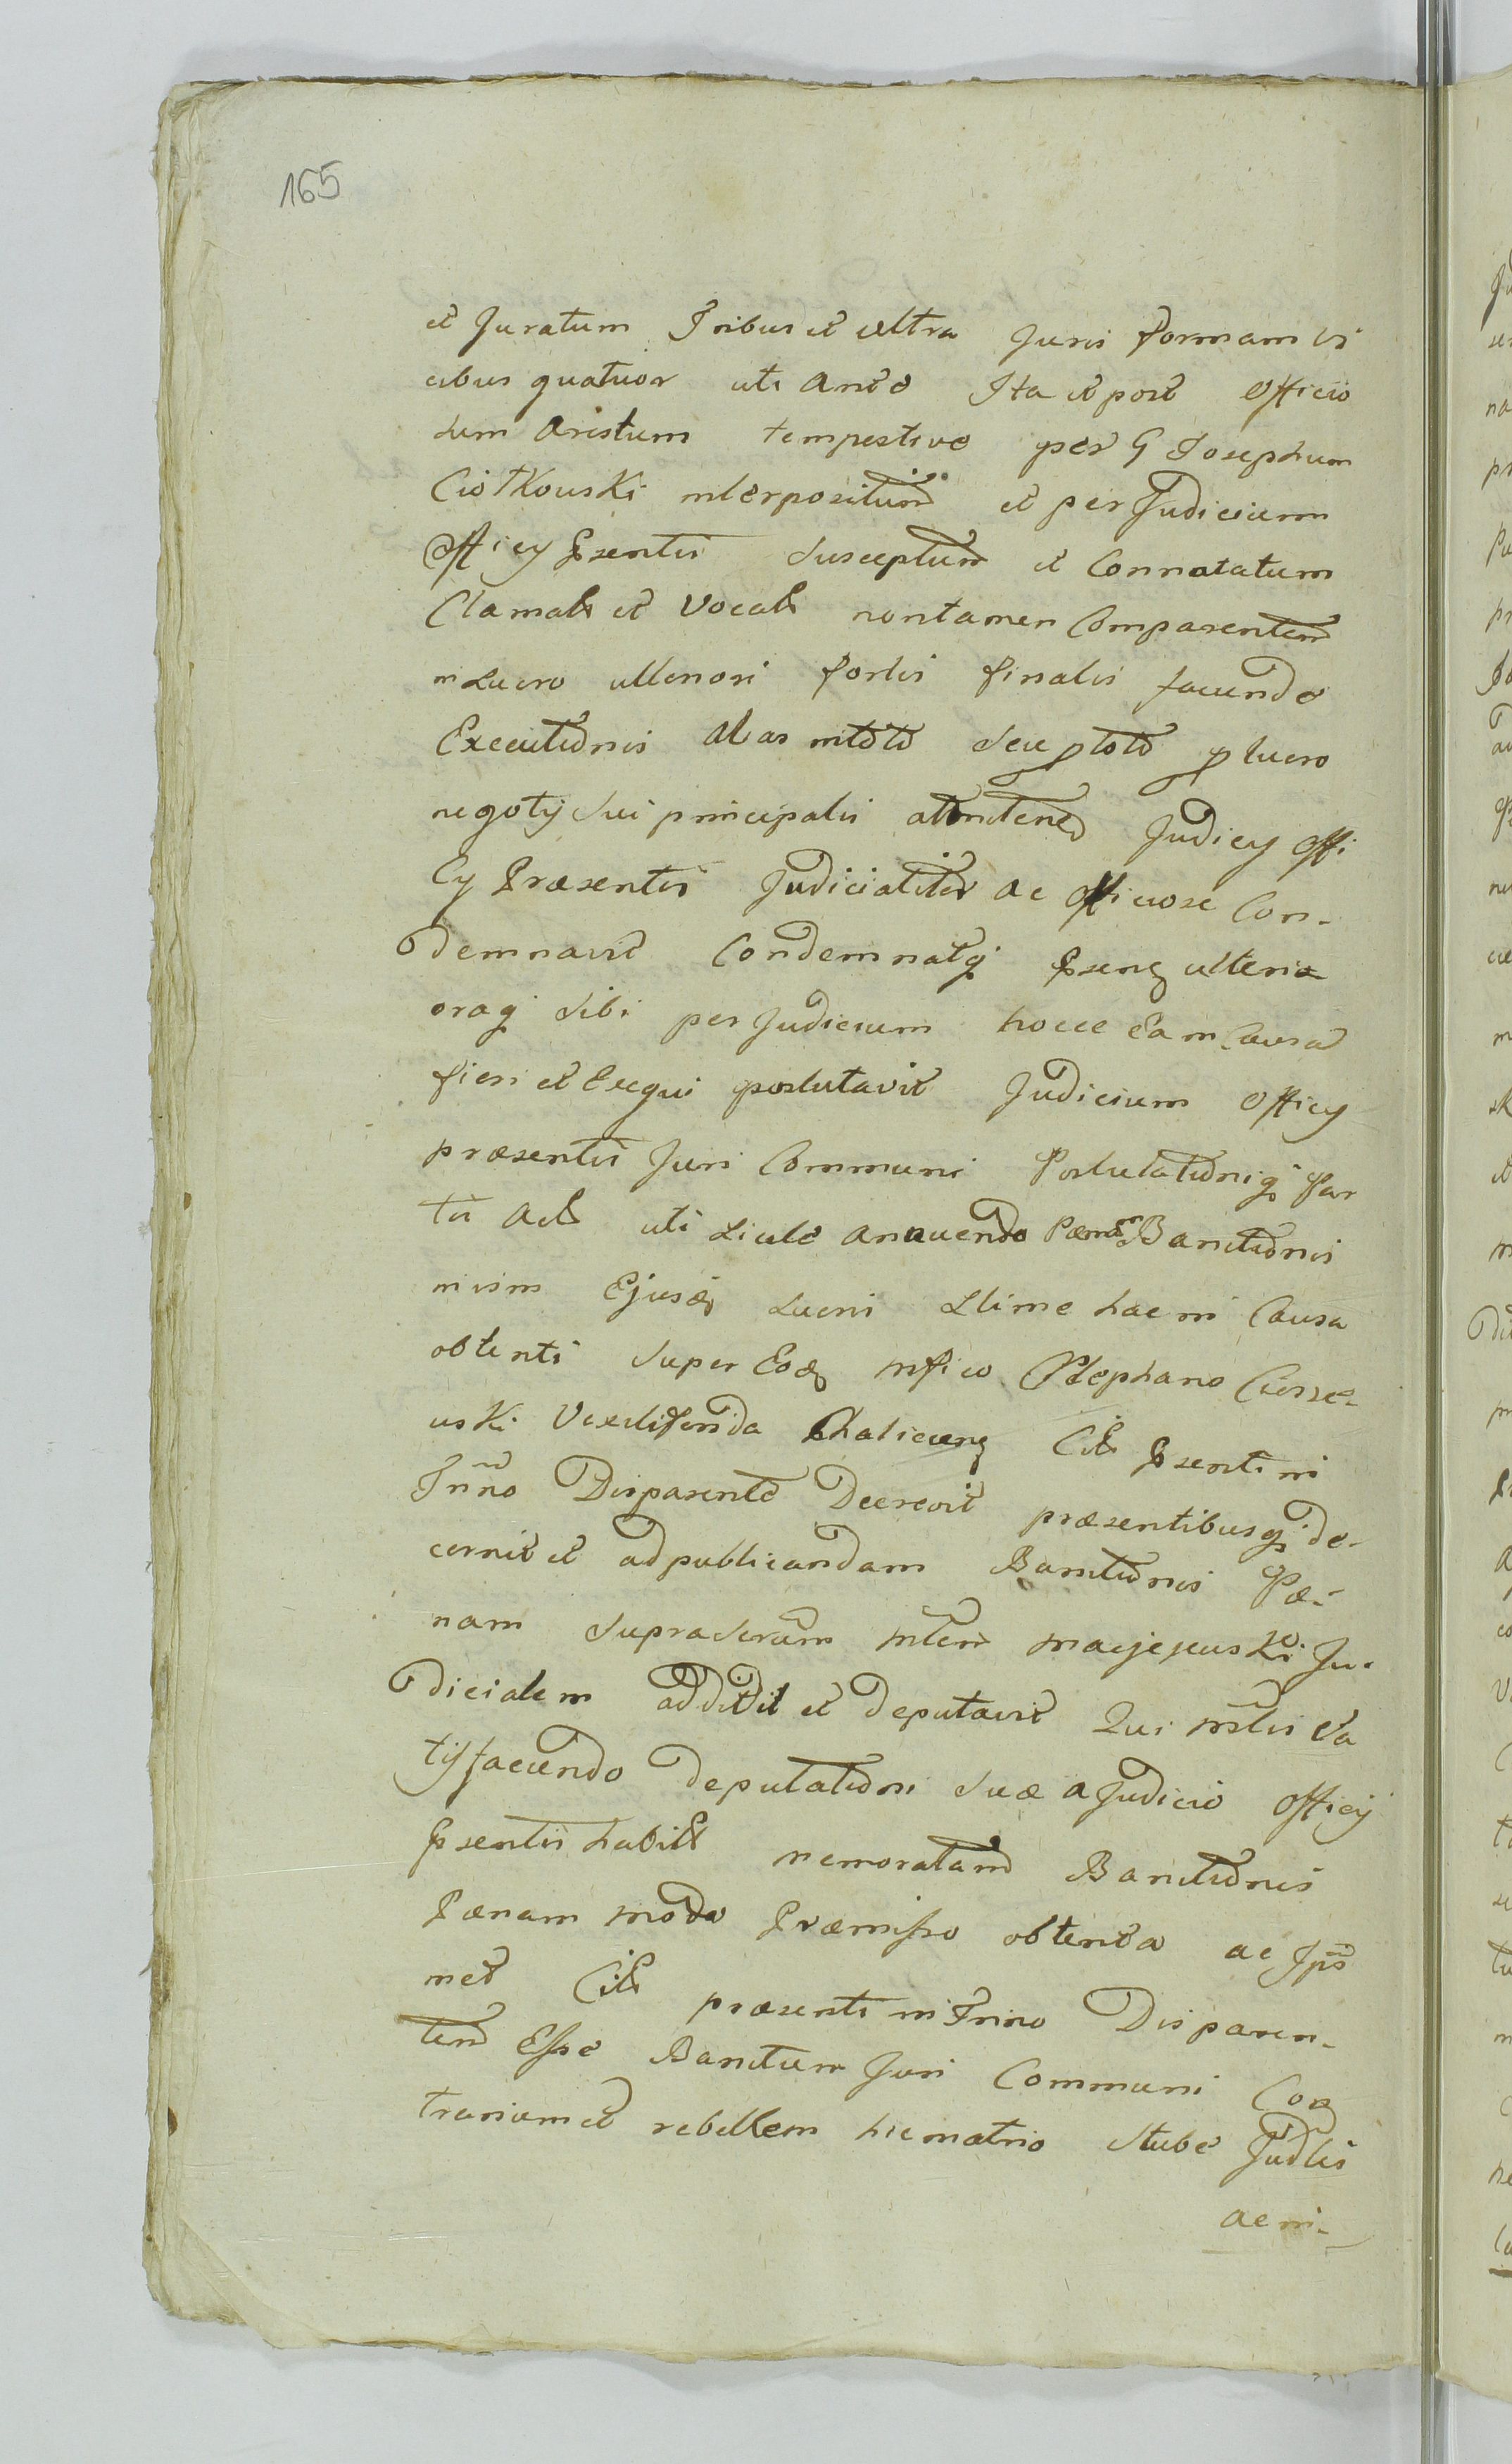 165
et Juratum Tribus et ultra Juris formam vi
cibus quatuor uti Ante Ita et post Officio
sum Aristum tempestive per G Josephum
Ciołkouski interpositum et per Judicium
Officy Psentis Susceptum et Connotatum
Clamatt et Vocatt non tamen Comparentem
in Lucro ulterioris sortis finalis faciendo
Executionis Alas in toto seu ptoto p lucro
negoty sui principalis attinten Judicy Offi
Cy Præsentis Judicialiter ac Officiose Con-
demnavit Condemnatq Psen ulteri
oraq Sibi per Judicium hocce Ea in Causa
fieri et Exequi postulavit Judicium Officy
præsentis Juri Communi Postulationiq Par
tis Act uti Licite Annuendo Pænam Banitionis
in vim Ejusd Lucri Ltime hac in Causa
obtenti Super Eod mfico Stephano
uski Vexiliferida Halicien Citt Psenti in
Trino Disparente Decrevit præsentibusq de-
cernit et ad publicandam Banitionis Pæ-
nam suprascram Mlem Ju-
dicialem addidit et deputavit Qui Mlis Sa
tisfaciendo deputationi suæ a Judicio Officij
Psentis habitt memoratam Banitionis
Pænam modo Præmisso obtenta ac Jps
met Citt præsenti in Trino Disparen-
tem Esse Banitum Juri Communi Con
trarium et rebellem hic in atrio Stubæ Judlis
ac in-